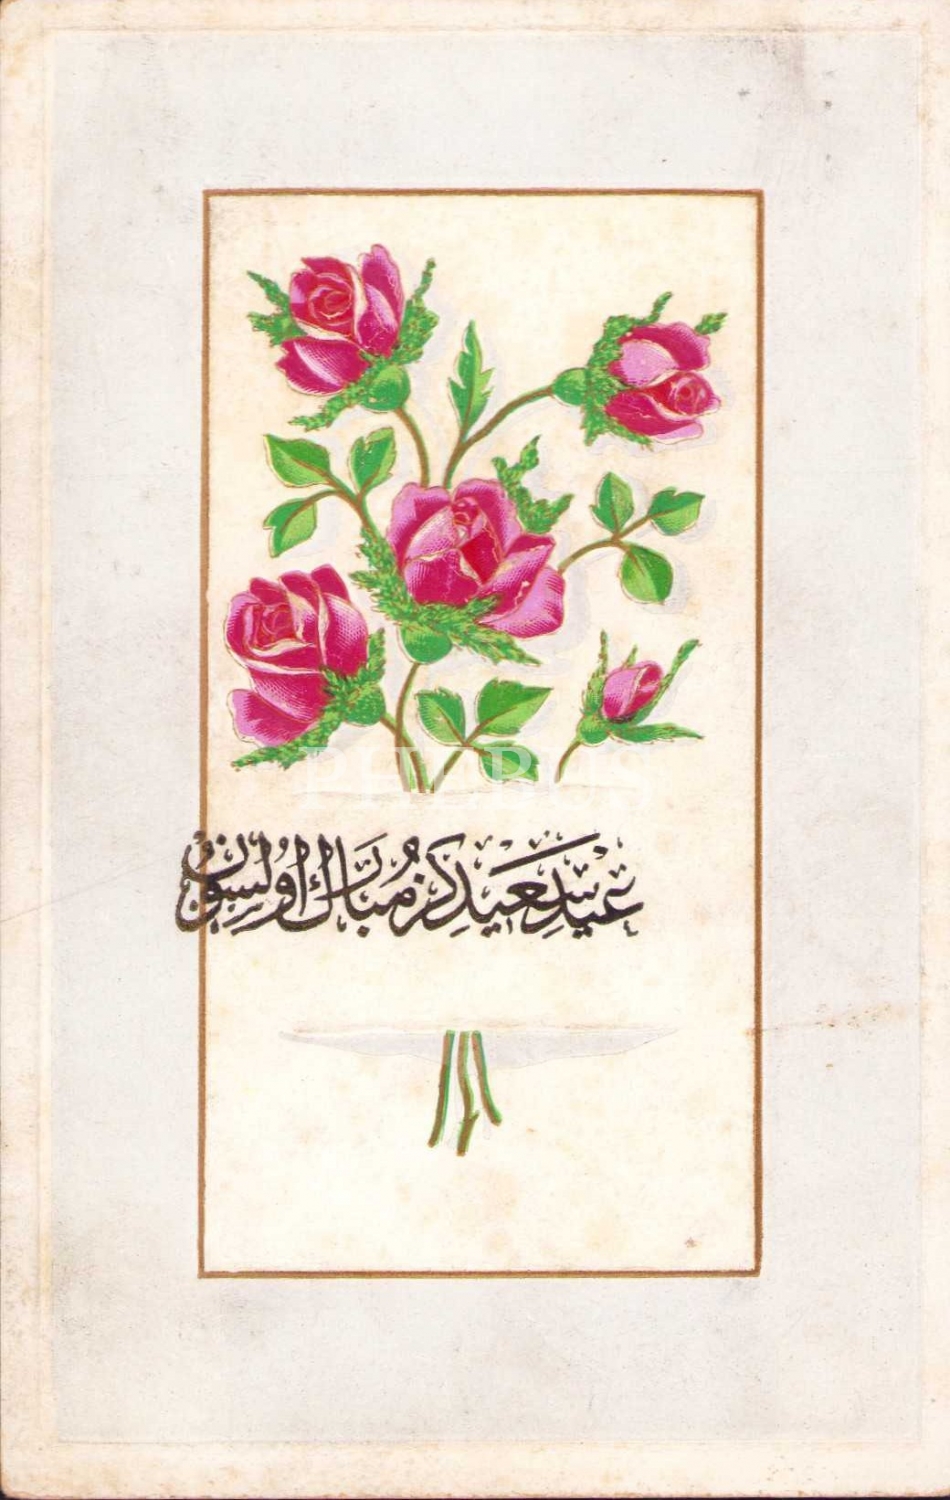 PHEBUS
عيد سعيدكز مبارك اولسون